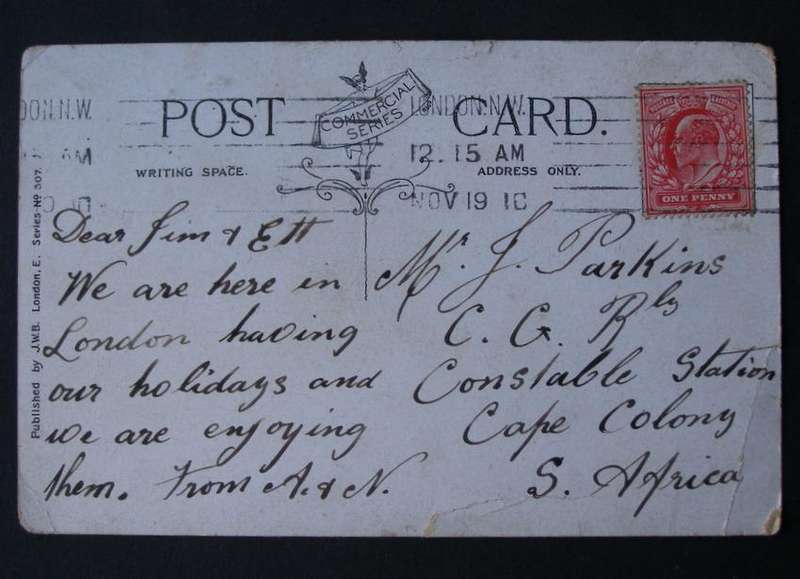 POST CARD.
COMMERCIAL
SERIES
LONDON.N.W.
12. 15 AM
NOV 19 10
DON.N.W.
AM
WRITING SPACE.
ADDRESS ONLY.
ONE PENNY
Published by J.W.B. London, E. Series Nº 307.
Dear Jim & Ett
We are here in
London having
our holidays and
we are enjoying
them. From A. & N.
Mr J. Parkins
C. G. Rly
Constable Station
Cape Colony
S. Africa